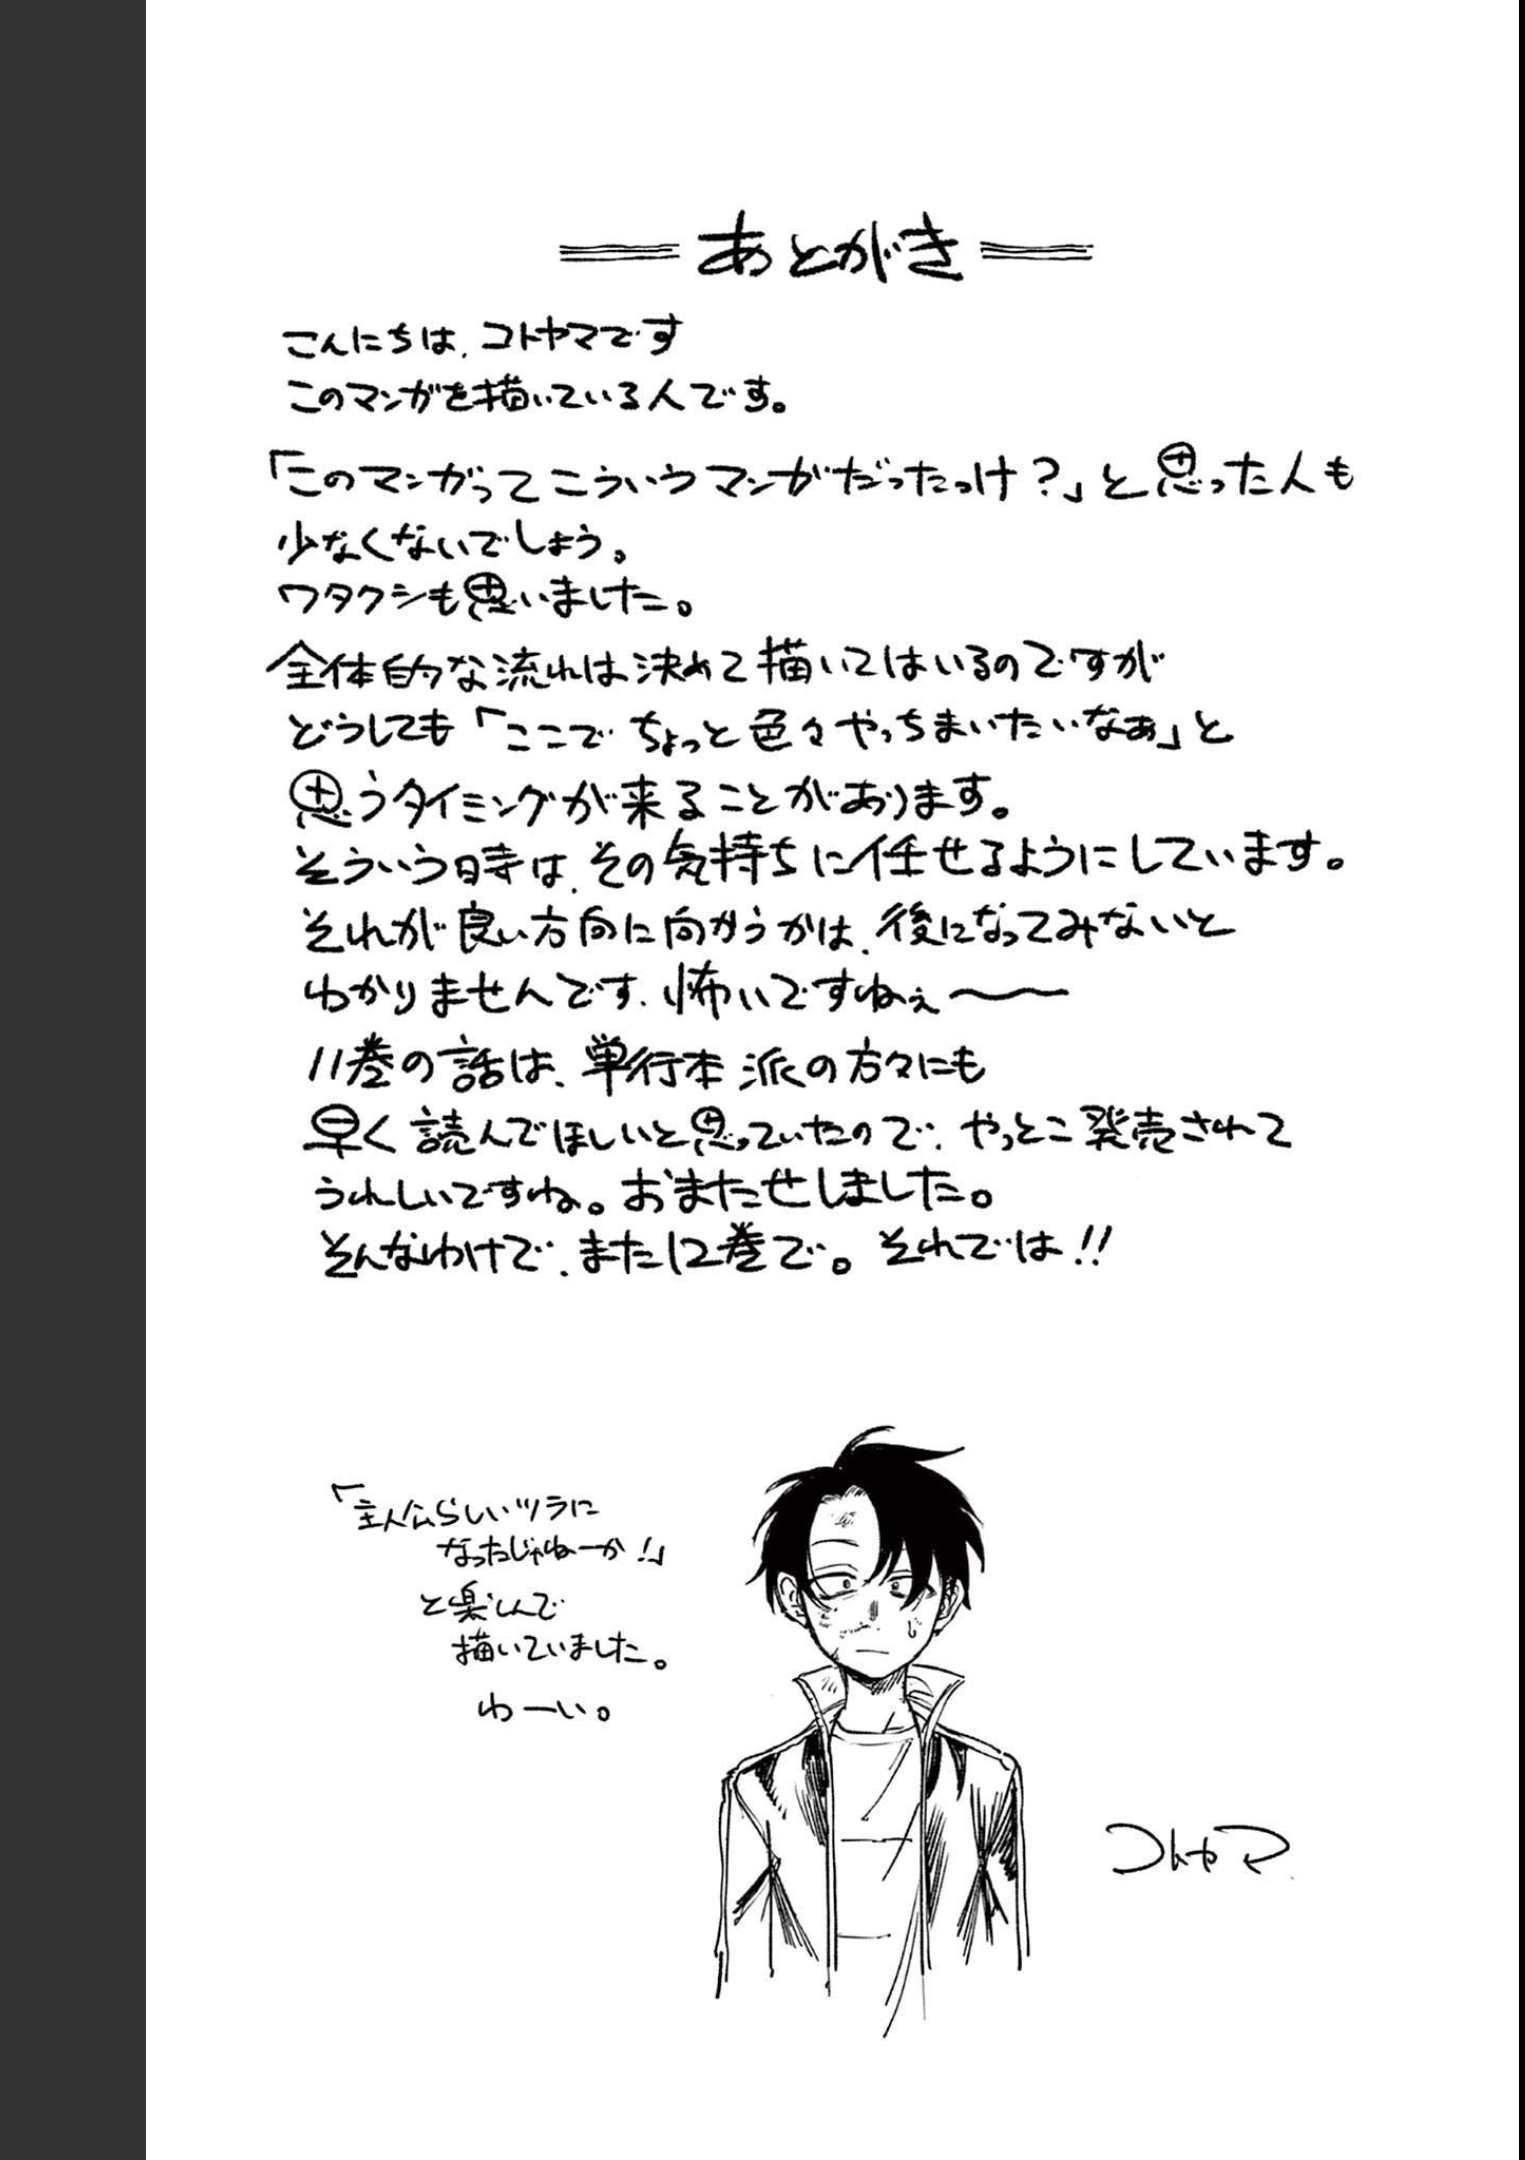 あとがき
こんにちは、コトヤマです
このマンガを描いている人です。
「このマンガってこういうマンガだったっけ?」と思った人も
少なくないでしょう。
ワタクシも思いました。
全体的な流れは決めて描いてはいるのですが
どうしても「ここでちょっと色々やっちまいたいなぁ」と
思うタイミングが来ることがあります。
そういう時は、その気持ちに任せるようにしています。
それが良い方向に向かうかは、後になってみないと
わかりませんです、怖いですねぇ〜〜
11巻の話は、単行本派の方々にも
早く読んでほしいと思っていたので、やっとこ発売されて
うれしいですね。おまたせしました。
そんなわけで、また12巻で。それでは!!
「主人公らしいツラに
なったじゃねーか!」
と楽しんで
描いていました。
わーい。
コトヤマ